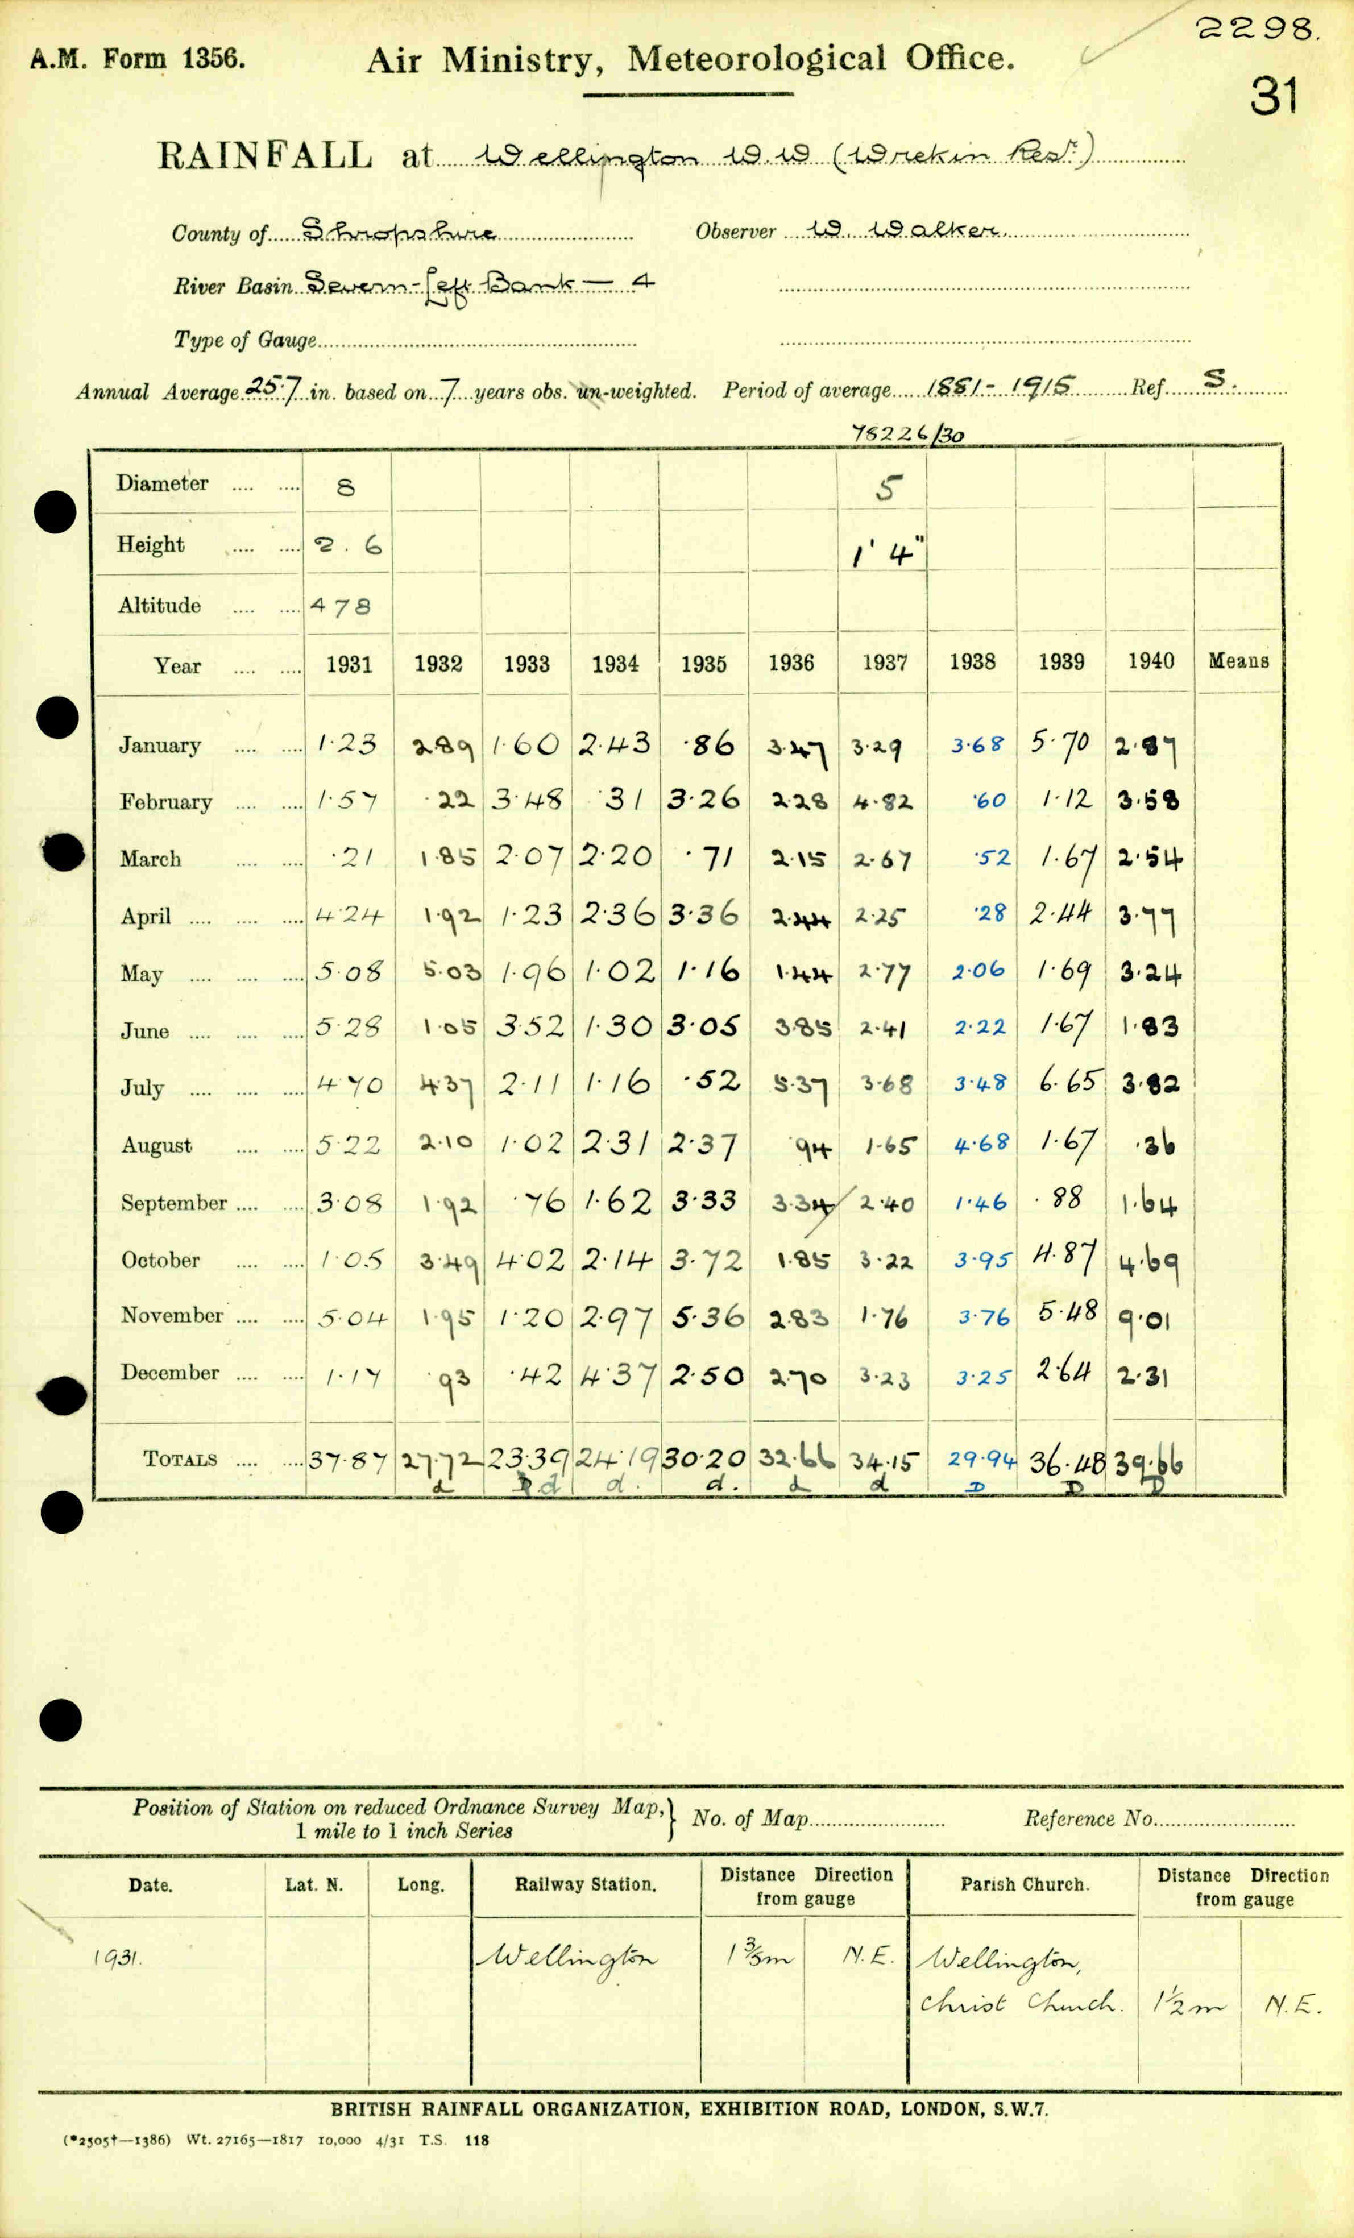 2298.
A.M. Form 1356. Air Ministry, Meteorological Office.
31
RAINFALL at Wellington W.W (Wrekin Resr.)
County of Shropshire Observer W. Walker.
River Basin Severn-Left Bank — 4
Type of Gauge
Annual Average 25·7 in. based on 7 years obs. un-weighted. Period of average 1881-1915 Ref. S.
78226/30
Diameter 8 5
Height 2.6 1' 4"
Altitude 478
Year 1931 1932 1933 1934 1935 1936 1937 1938 1939 1940 Means
January 1·23 2·89 1·60 2·43 ·86 3·47 3·29 3·68 5·70 2·87
February 1·57 ·22 3·48 ·31 3·26 2·28 4·82 ·60 1·12 3·58
March ·21 1·85 2·07 2·20 ·71 2·15 2·67 ·52 1·67 2·54
April 4·24 1·92 1·23 2·36 3·36 2·44 2·25 ·28 2·44 3·77
May 5·08 5·03 1·96 1·02 1·16 1·44 2·77 2·06 1·69 3·24
June 5·28 1·05 3·52 1·30 3·05 3·85 2·41 2·22 1·67 1·83
July 4·70 4·37 2·11 1·16 ·52 5·37 3·68 3·48 6·65 3·82
August 5·22 2·10 1·02 2·31 2·37 ·94 1·65 4·68 1·67 ·36
September 3·08 1·92 ·76 1·62 3·33 3·34 2·40 1·46 ·88 1·64
October 1·05 3·49 4·02 2·14 3·72 1·85 3·22 3·95 4·87 4·69
November 5·04 1·95 1·20 2·97 5·36 2·83 1·76 3·76 5·48 9·01
December 1·17 ·93 ·42 4·37 2·50 2·70 3·23 3·25 2·64 2·31
TOTALS 37·87 27·72 23·39 24·19 30·20 32·66 34·15 29·94 36·48 39·66
d d d. d. d d D D D
Position of Station on reduced Ordnance Survey Map,} No. of Map Reference No.
1 mile to 1 inch Series
Date. Lat. N. Long. Railway Station. Distance Direction from gauge Parish Church. Distance Direction from gauge
1931. Wellington 1 3/5m N.E. Wellington,
Christ Church. 1½m N.E.
BRITISH RAINFALL ORGANIZATION, EXHIBITION ROAD, LONDON, S.W.7.
(*2505†—1386) Wt. 27165—1817 10,000 4/31 T.S. 118